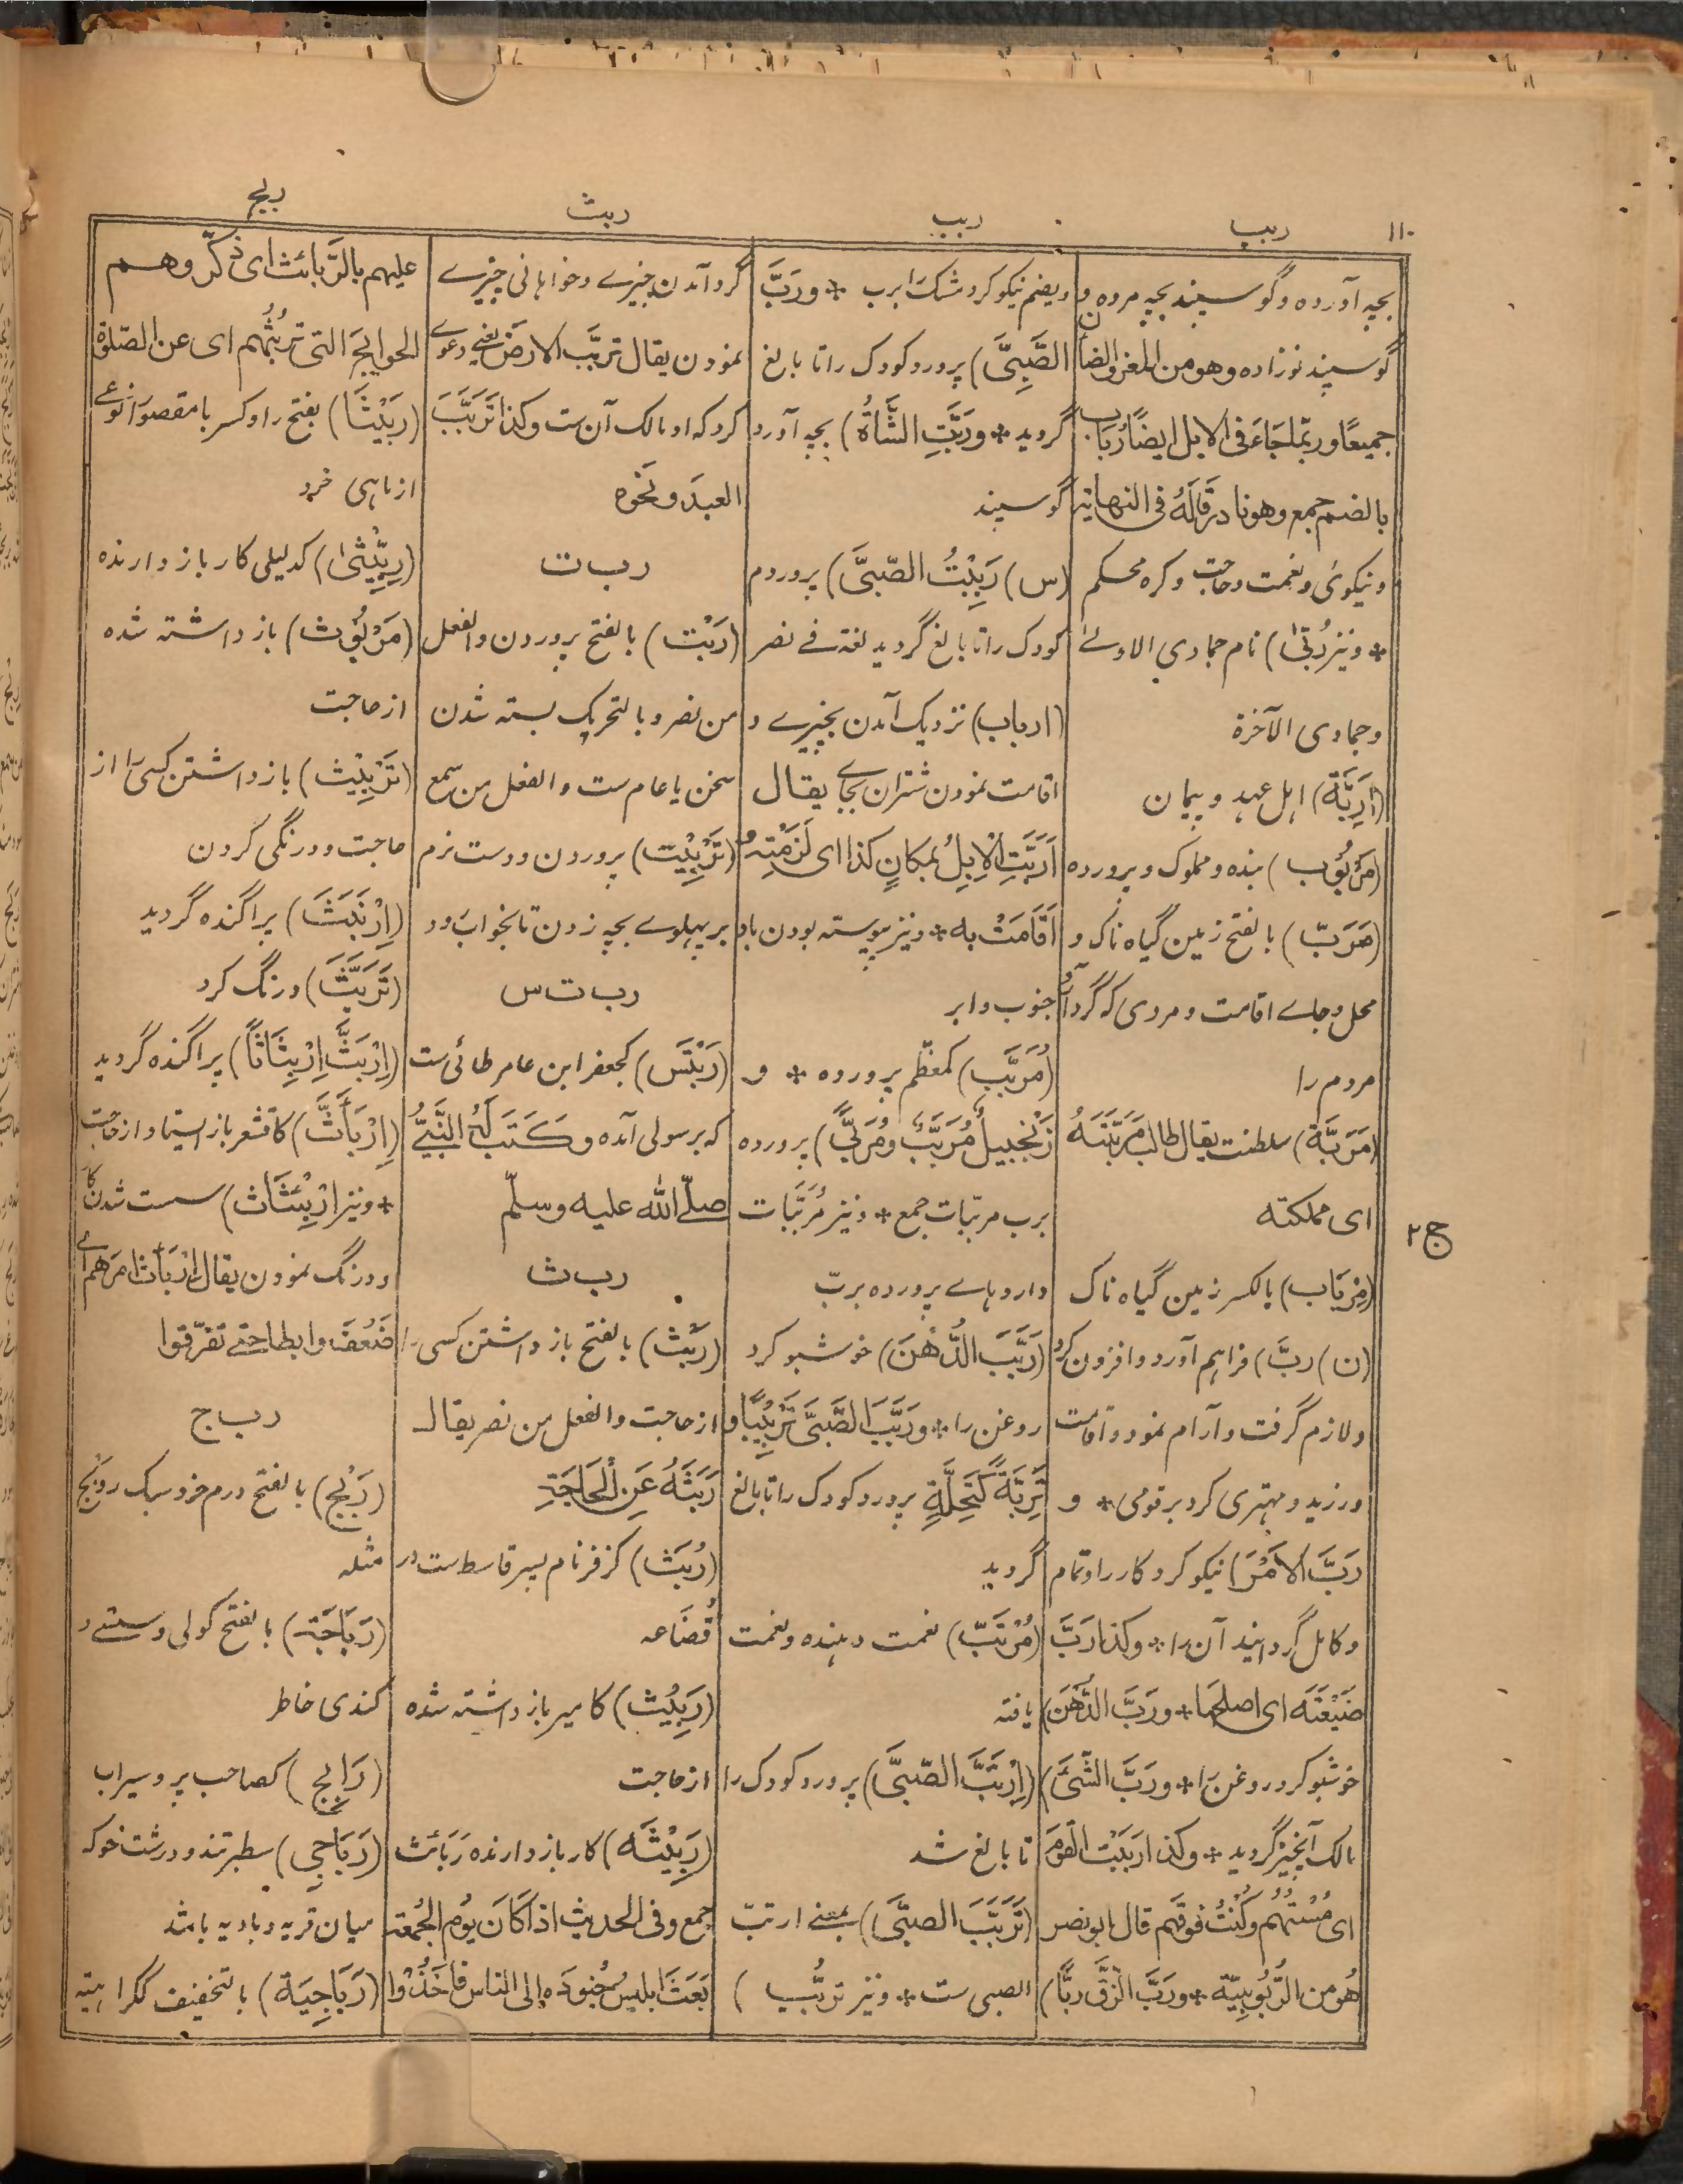 ۱۱۰
ربب
ربب
ربث
ربج
بچه آورده و گوسپند بچه مرده و
گوسپند نوزاده وهو من المعز والضأن
جميعًا وربّما جَاءَ فی الابل ايضًا رُبَاب
بالضم جمع وهو نادر قَالَهُ فی النهاية
و نیکوئی و نعمت و حاجت و گره محکم
* و نیز رُبّٰی) نام جمادی الاولے
و جمادی الآخرة
(اَرِبَّة) اهل عهد و پیمان
(مَرْبُوْب) بنده و مملوک و پرورده
(مَرَبّ) بالفتح زمین گیاه ناک و
محل و جاے اقامت و مردی که گرد آرد
مردم را
(مَرَبَّة) سلطنت یقال طالب مَرَبَّتَهُ
ای مملکته
(مِرْبَاب) بالکسر زمین گیاه ناک
(ن) ربَّ) فراهم آورد و افزون کرد
و لازم گرفت و آرام نمود و اقامت
ورزید و مهتری کرد بر قومی * و
رَبَّ الاَمْرَ) نیکو کرد کار را و تمام
و کامل گردانید آن را * وکذا رَبَّ
ضَيْعَتَه ای اصلحها * ورَبَّ الدُّهْنَ)
خوشبو کرد روغن را * ورَبَّ الشَّیَٔ)
مالک آنچیز گردید * وکذا رَبَبْتُ القَوْمَ
ای سُسْتُهُم وَكُنْتُ فوقَهم قال ابو نصر
هُو من الرُّبُوبِيَّة * ورَبَّ الزِّقَّ ربًّا)
و بضم نیکو کرد مشک را برب * ورَبَّ
الصَّبِیَّ) پرورد کودک را تا بالغ
گردید * ورَبَّتِ الشَّاةُ) بچه آورد
گوسپند
(س) رَبِبْتُ الصَّبیَّ) پروردم
کودک را تا بالغ گردید لغة فے نصر
(ارباب) نزدیک آمدن بچیزے و
اقامت نمودن شتران بجاے یقال
اَرَبَّتِ الْاِبِلُ بمکانٍ کذا ای لَزِمَتْهُ و
اَقَامَتْ به * و نیز پیوسته بودن باد
جنوب و ابر
(مُرَبَّب) کمعظّم پرورده * و
زَنْجَبِيلٌ مُرَبَّبٌ ومُرَبًّی) پرورده
برب مربّبات جمع * و نیز مُرَبَّبات
داروهاے پرورده بربّ
(رَبَّبَ الدُّهْنَ) خوشبو کرد
روغن را * ورَبَّبَ الصَّبِیَّ تَرْبِيْبًا و
تَرِبَّةً كَتَحِلَّةٍ پرورد کودک را تا بالغ
گردید
(مُرْتَبّ) نعمت دهنده و نعمت
یافته
(اِرْتَبَّ الصَّبیَّ) پرورد کودک را
تا بالغ شد
(تَرَبَّبَ الصبّیَ) بمعنے ارتبّ
الصبی ست * و نیز تربُّب)
گرد آمدن چیزے و خواهانی چیزے
نمودن یقال تربَّب الارضَ یعنے دعوے
کرد که او مالک آن ست وکذا تَرَبَّبَ
العبدَ ونَحْوه
رب ت
(رَبْت) بالفتح پروردن والفعل
من نصر و بالتحریک بسته شدن
سخن یا عام ست والفعل من سمع
(تَرْبِيْت) پروردن و دست نرم
بر پهلوے بچه زدن تا بخواب رود
رب ت س
(رَبْتَس) کجعفر ابن عامر طائی ست
که برسولی آمده وكَتَبَ لَهُ النَّبِیُّ
صلّے اللّٰه علیه وسلّم
رب ث
(رَبْث) بالفتح باز داشتن کسی را
از حاجت والفعل من نصر یقال
رَبَثَهُ عَنِ الْحَاجَةِ
(رُبَث) کزفر نام پسر قاسط ست در
قُضَاعه
(رَبِيْث) کامیر باز داشته شده
از حاجت
(رَبِيْثَه) کار باز دارنده رَبَائث
جمع وفی الحدیث اذا كَانَ يوم الجُمعة
بَعَثَ ابليسُ جُنودَه الی الناس فَاَخَذُوْا
علیهم بالرَّبائث ای ذکّروهم
الحوایجَ التی تربُثُهم ای عن الصّلوة
(رَبِيْثَا) بفتح را و کسر با مقصورًا نوعے
از ماهی خرد
(رِبِّيْثٰی) کدلیلی کار باز دارنده
(مَرْبُوْث) باز داشته شده
از حاجت
(تَرْبِيْث) باز داشتن کسی را از
حاجت و درنگی کردن
(اِرْتَبَثَ) پراگنده گردید
(تَرَبَّثَ) درنگ کرد
(اِرْبَثَّ اِرْبِثَاثًا) پراگنده گردید
(اِرْبَأَثَّ) کاقشعر باز ایستاد از حاجت
* و نیز اِرْبِئْثَاث) سست شدن کار
و درنگ نمودن یقال اِرْبَأَثَّ امرهم اے
ضَعُفَ وابطا حتے تفرّقوا
رب ج
(رَبْج) بالفتح درم خرد سبک روبج
مثله
(رَبَاجَة) بالفتح گولی و سستے و
کندی خاطر
(رَابِج) کصاحب پر و سیراب
(رَبَاجِی) سطبر تند و درشت خو که
میان قریه و بادیه باشد
(رَبَاجِيَة) بالتخفیف ککراهیته
ج۲